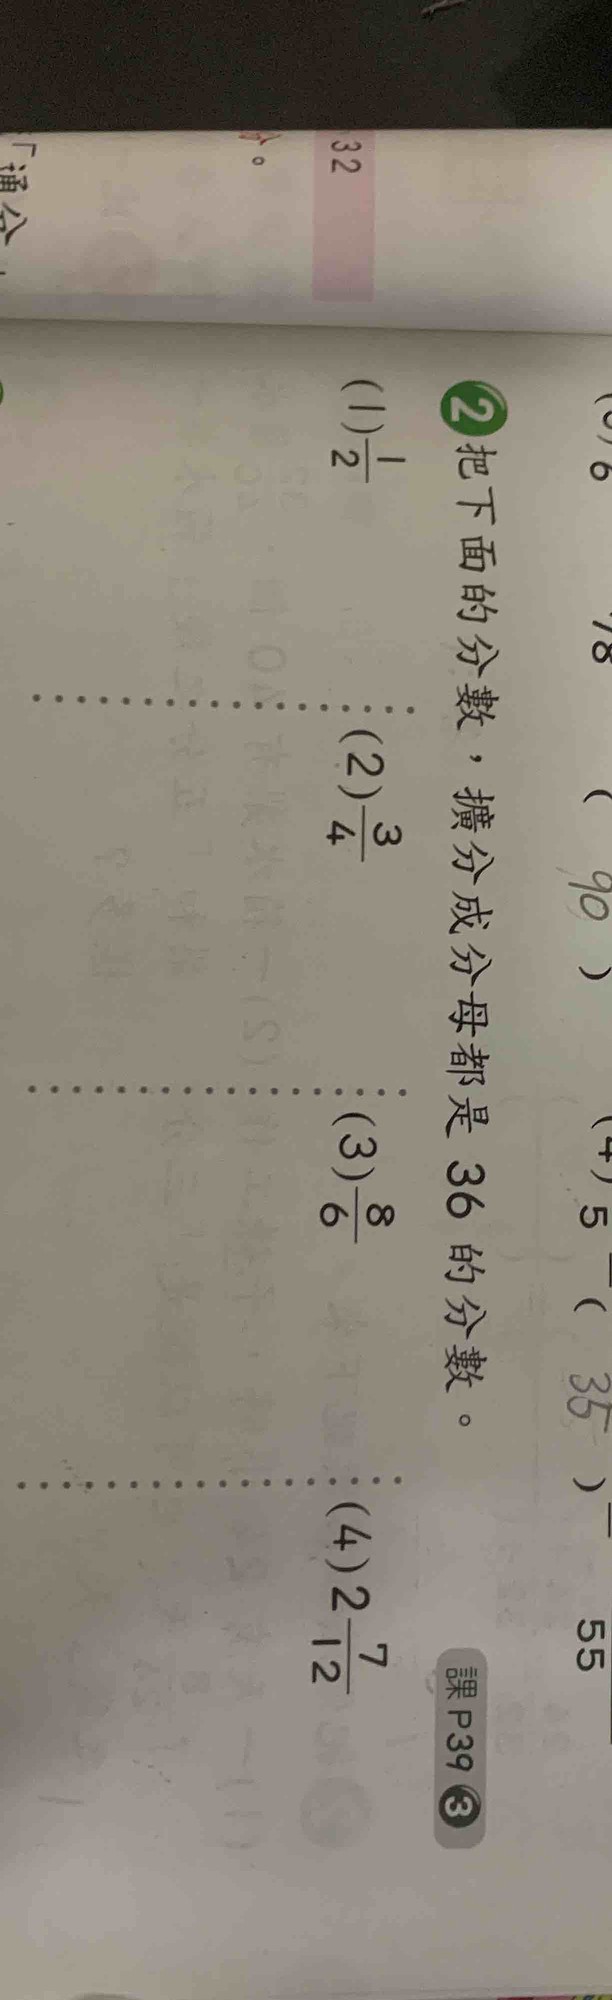 32
。
「通分
6 78 ( 90 ) (4) 5 ( 35 ) 55
2 把下面的分數，擴分成分母都是 36 的分數。 課P39 3
(1) 1/2 (2) 3/4 (3) 8/6 (4) 2 7/12